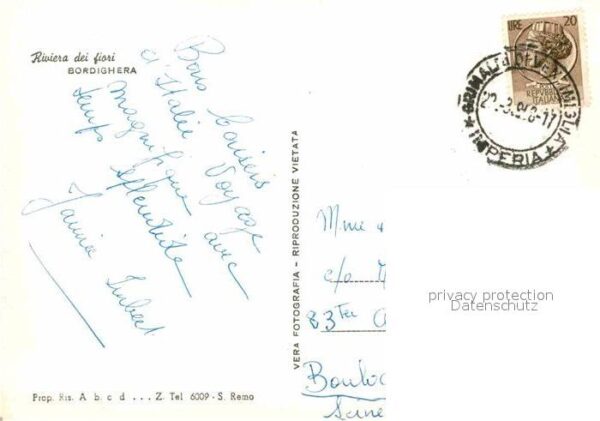 Riviera dei fiori
BORDIGHERA
Bons baisers
d'Italie Voyage
magnifique avec
temps splendide
Janine Imbert
VERA FOTOGRAFIA - RIPRODUZIONE VIETATA
Prop. Ris. A b. c d ... Z. Tel 6009 - S. Remo
LIRE 20
REPUBBLICA
ITALIANA
GRIMALDI DI VENTIMIGLIA
IMPERIA
Mme
c/o
83 Ter
privacy protection
Datenschutz
Seine